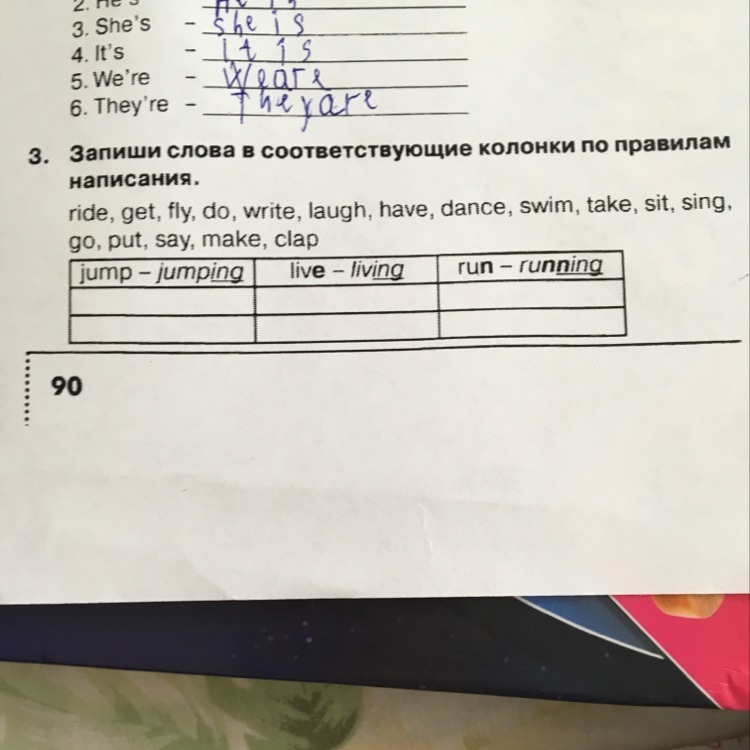 2. He's – He is
3. She's – She is
4. It's – It is
5. We're – We are
6. They're – They are
3. Запиши слова в соответствующие колонки по правилам
написания.
ride, get, fly, do, write, laugh, have, dance, swim, take, sit, sing,
go, put, say, make, clap
jump – jumping live – living run – running
90